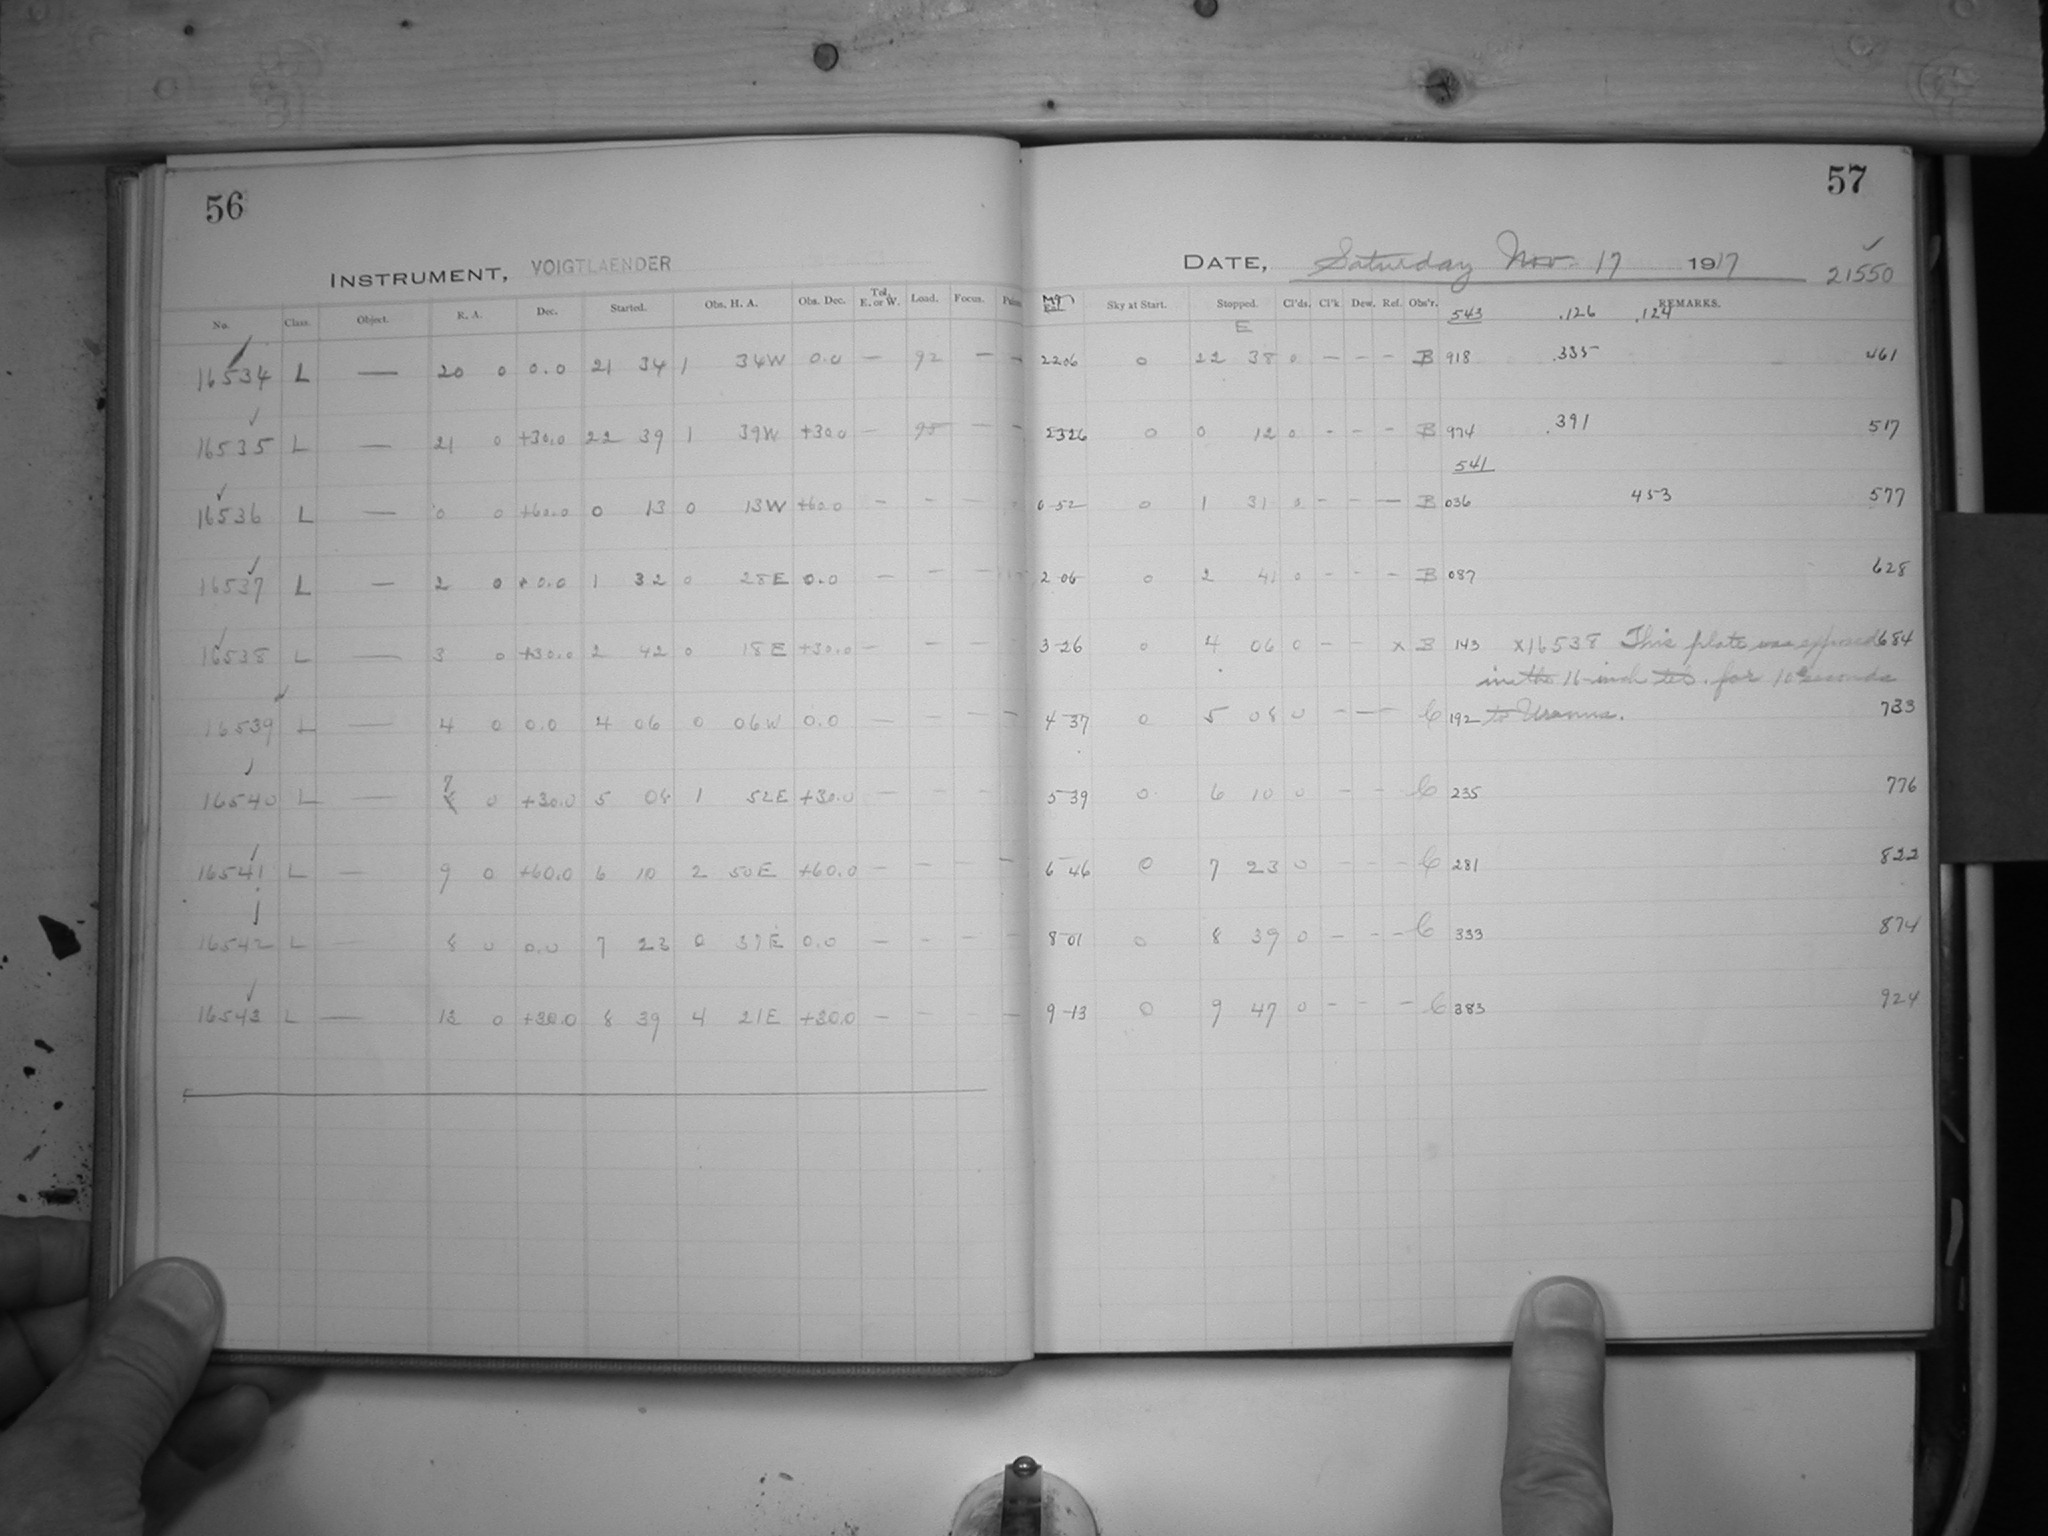 56
57
INSTRUMENT, VOIGTLAENDER
DATE, Saturday Nov. 17 1917 21550
No. Class. Object. R. A. Dec. Started. Obs. H. A. Obs. Dec. Tel. E. or W. Load. Focus. Sky at Start. Stopped. Cl'ds. Cl'k. Dew. Ref. Obs'r. REMARKS.
E 543 .126 .124
16534 L — 20 0 0.0 21 34 1 34W 0.0 — 92 — — 2206 0 22 38 0 — — — B 918 .335 461
16535 L — 21 0 +30.0 22 39 1 39W +30.0 — 95 — — 2326 0 0 12 0 - - - B 974 .391 517
541
16536 L — 0 0 +60.0 0 13 0 13W +60.0 — — — 0-52 0 1 31 0 - - — B 036 453 577
16537 L — 2 0 +0.0 1 32 0 28E 0.0 — — — 2 06 0 2 41 0 - - - B 087 628
16538 L — 3 0 +30.0 2 42 0 18E +30.0 — — — — 3-26 0 4 06 0 - - x B 143 x16538 This plate was exposed 684
in the 16-inch tel. for 10 seconds
16539 L — 4 0 0.0 4 06 0 06W 0.0 — — — — 4-37 0 5 08 0 - — - C 192 to Uranus. 733
16540 L — 7 0 +30.0 5 08 1 52E +30.0 — — — — 5 39 0 6 10 0 - - C 235 776
16541 L — 9 0 +60.0 6 10 2 50E +60.0 — — — — 6 46 0 7 23 0 - - - C 281 822
16542 L 8 0 0.0 7 23 0 37E 0.0 — - - - 8 01 0 8 39 0 - - - C 333 874
16543 L — 13 0 +30.0 8 39 4 21E +30.0 — — — 9-13 0 9 47 0 - - - C 383 924